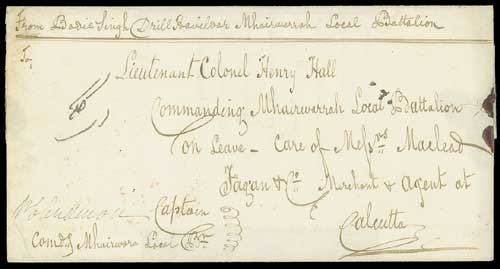 From Badic Singh Drill Havildar Mhairwarrah Local Battalion
To,
Lieutenant Colonel Henry Hall
Commanding Mhairwarrah Local Battalion
on Leave - Care of Messrs Macleod
Fagan & Co Merchant & Agent at
Calcutta
Captain
Comdg Mhairwara Local Bn